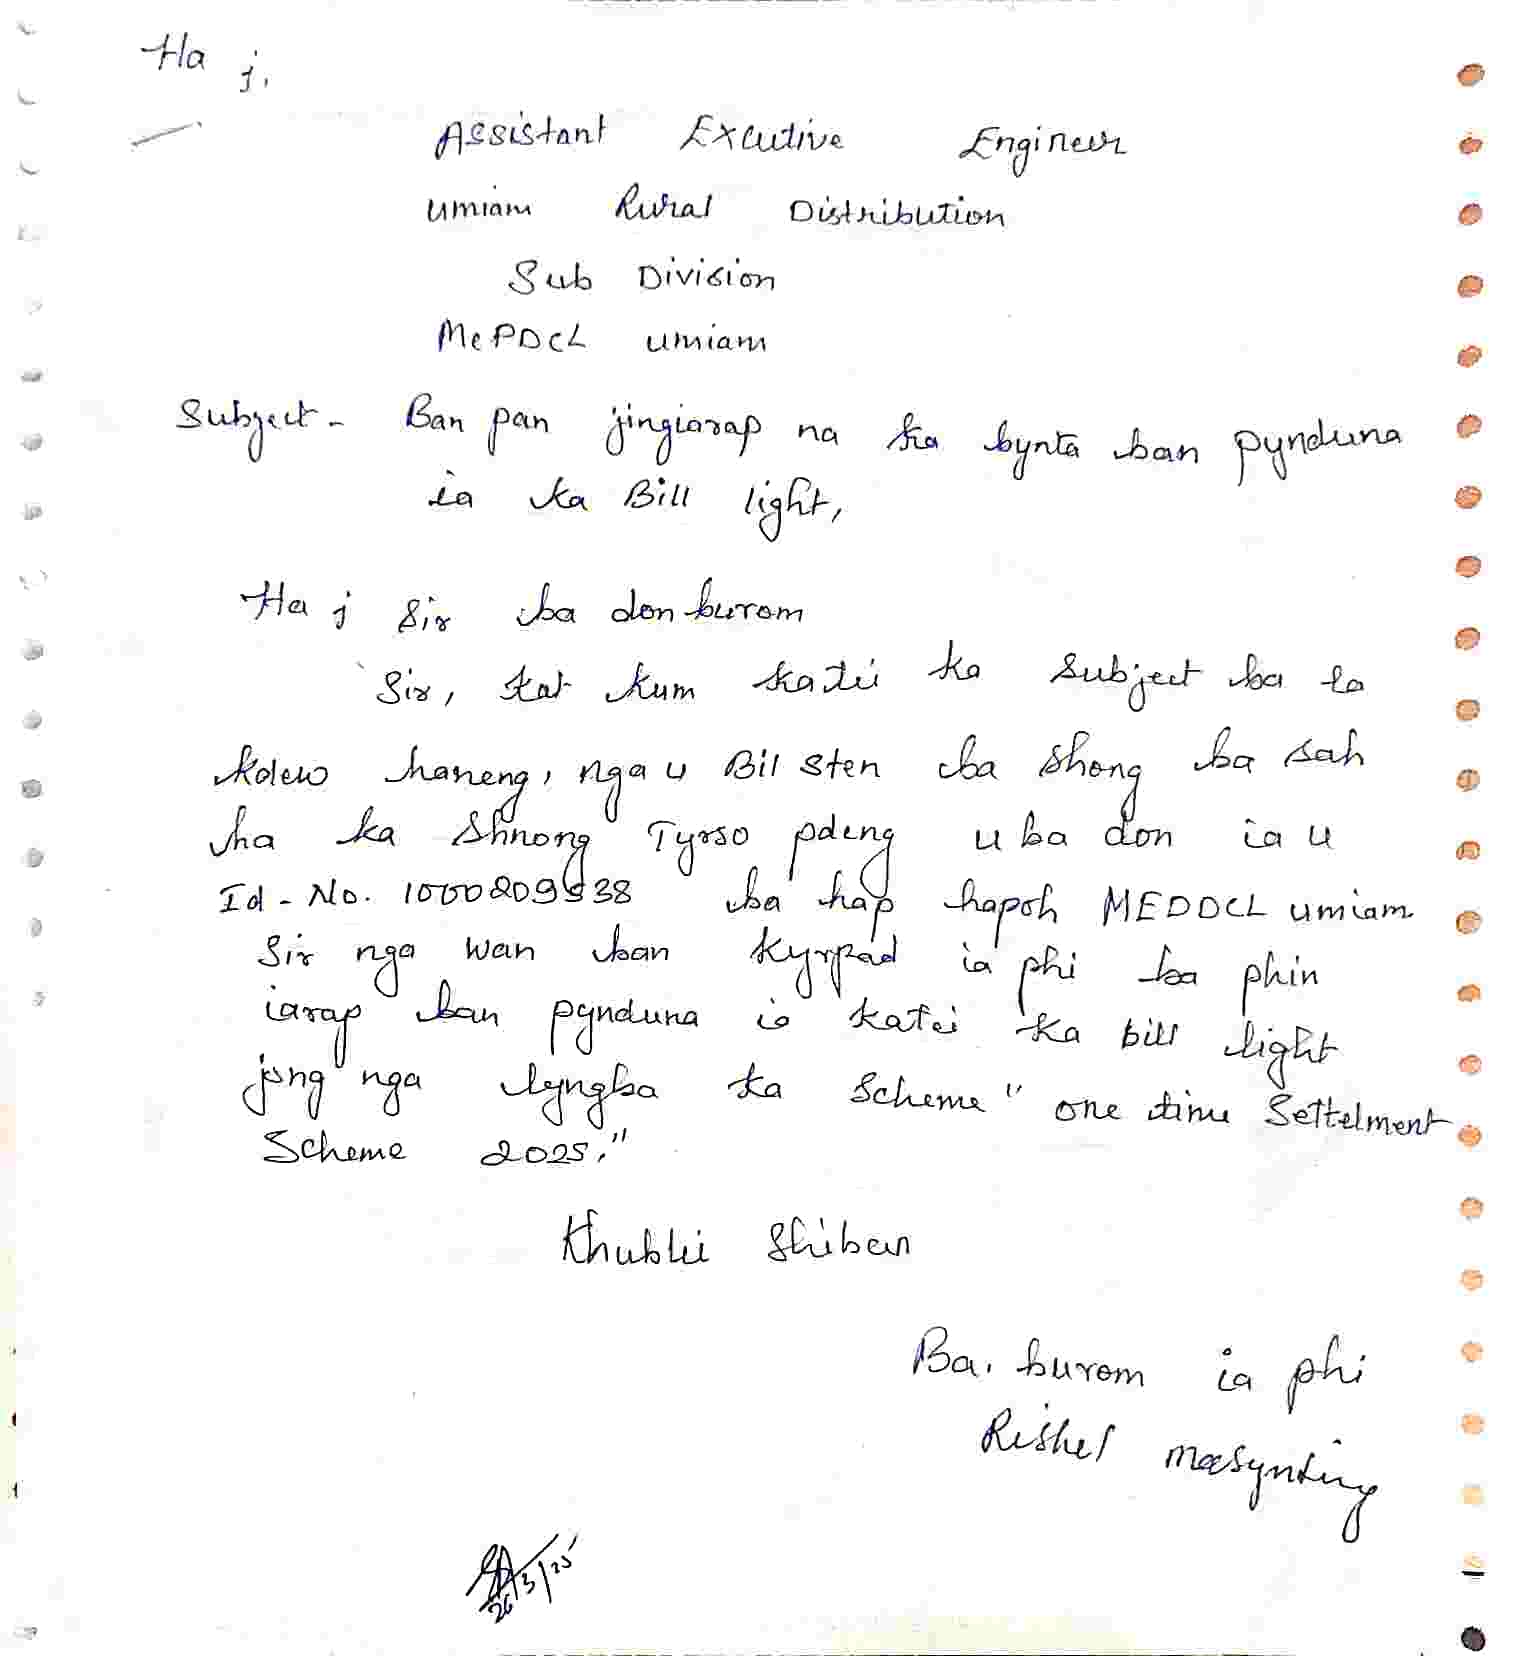 Ha j,
Assistant Excutive Engineer
umiam Rural Distribution
Sub Division
MePDCL umiam
Subject - Ban pan jingiarap na ka bynta ban pynduna
ia ka Bill light,
Ha j Sir ba donburom
Sir, kat kum katei ka Subject ba la
kdew haneng, nga u Bil sten ba shong ba sah
ha ka Shnong Tyrso pdeng u ba don ia u
Id - No. 1000209538 ba hap hapoh MEDDCL umiam
Sir nga wan ban kyrpad ia phi ba phin
iarap ban pynduna ia katei ka bill light
jong nga lyngba ka Scheme " one time Settelment
Scheme 2025."
Khublei Shiban
Ba. burom ia phi
Rishel
26/3/25